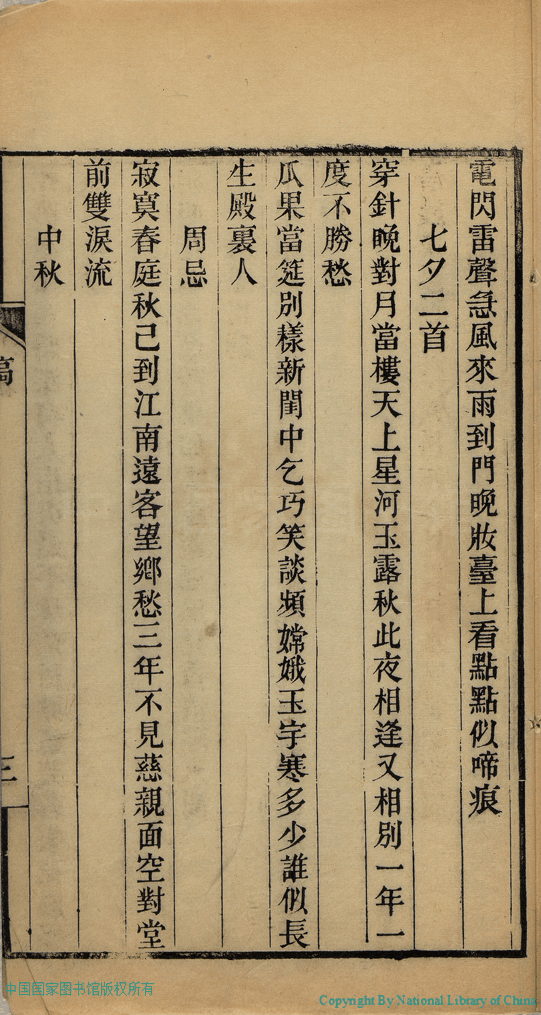 電閃雷聲急風來雨到門晚妝臺上看點點似啼痕
七夕二首
穿針晚對月當樓天上星河玉露秋此夜相逢又相別一年一
度不勝愁
瓜果當筵別樣新閨中乞巧笑談頻嫦娥玉宇寒多少誰似長
生殿裏人
周忌
寂寞春庭秋已到江南遠客望鄉愁三年不見慈親面空對堂
前雙淚流
中秋
稿
三
中国国家图书馆版权所有
Copyright By National Library of China